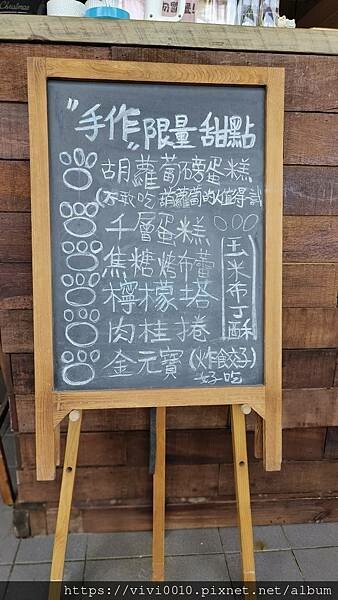 "手作"限量甜點
胡蘿蔔磅蛋糕
(不敢吃胡蘿蔔的值得試)
千層蛋糕
焦糖烤布蕾
檸檬塔
肉桂捲
金元寶(炸餃子)
好吃
玉米布丁酥
https://vivi0010.pixnet.net/album